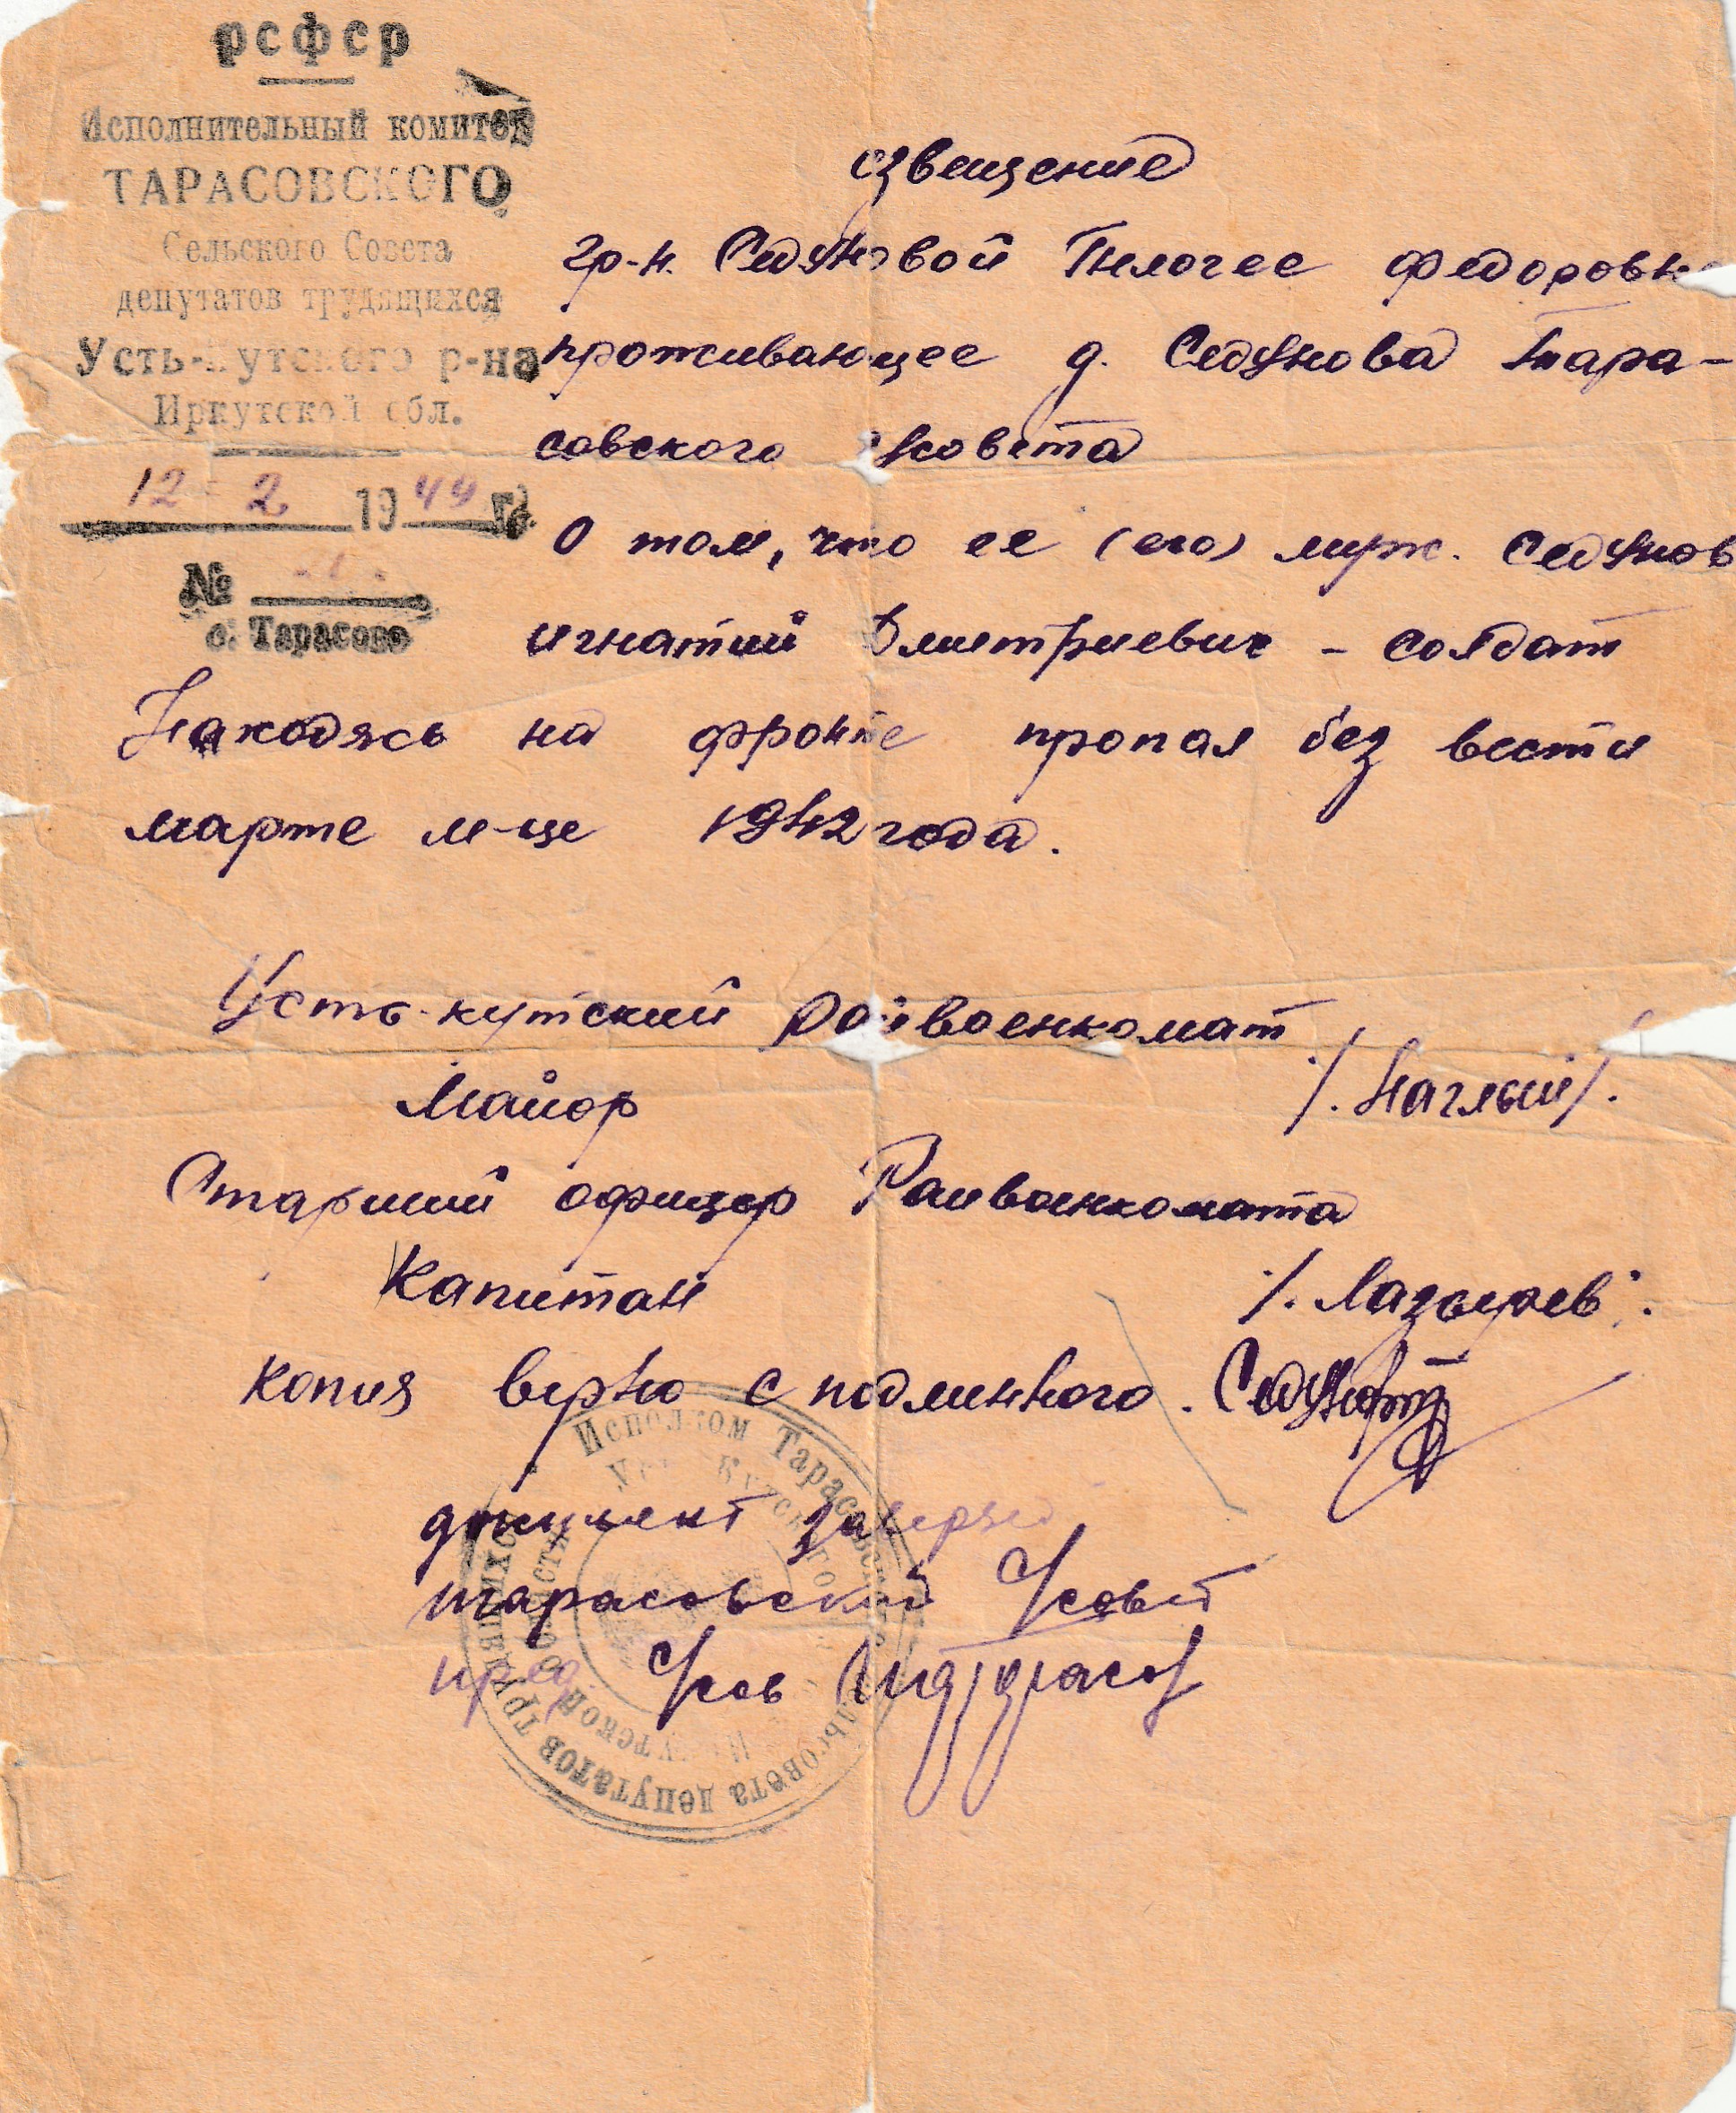 РСФСР
Исполнительный комитет
ТАРАСОВСКОГО
Сельского Совета
депутатов трудящихся
Усть-Кутского р-на
Иркутской обл.
12 2 1944 г.
№
с. Тарасово
Извещение
гр-н. Седуновой Пелогее Федоровне
проживающее д. Седунова Тара-
совского с/совета
О том, что ее (его) муж. Седунов
Игнатий Дмитриевич - солдат
Находясь на фронте пропал без вести
марте м-це 1942 года.
Усть-Кутский Райвоенкомат
Майор /. Наглый/.
Старший офицер Райвоенкомата
Капитан /. Лазырев.
Копия верно с подлинного.
документ заверяет
Тарасовский с/совет
пред с/сов
Исполком Тарасовского сельсовета депутатов трудящихся
Усть-Кутского Иркутской области